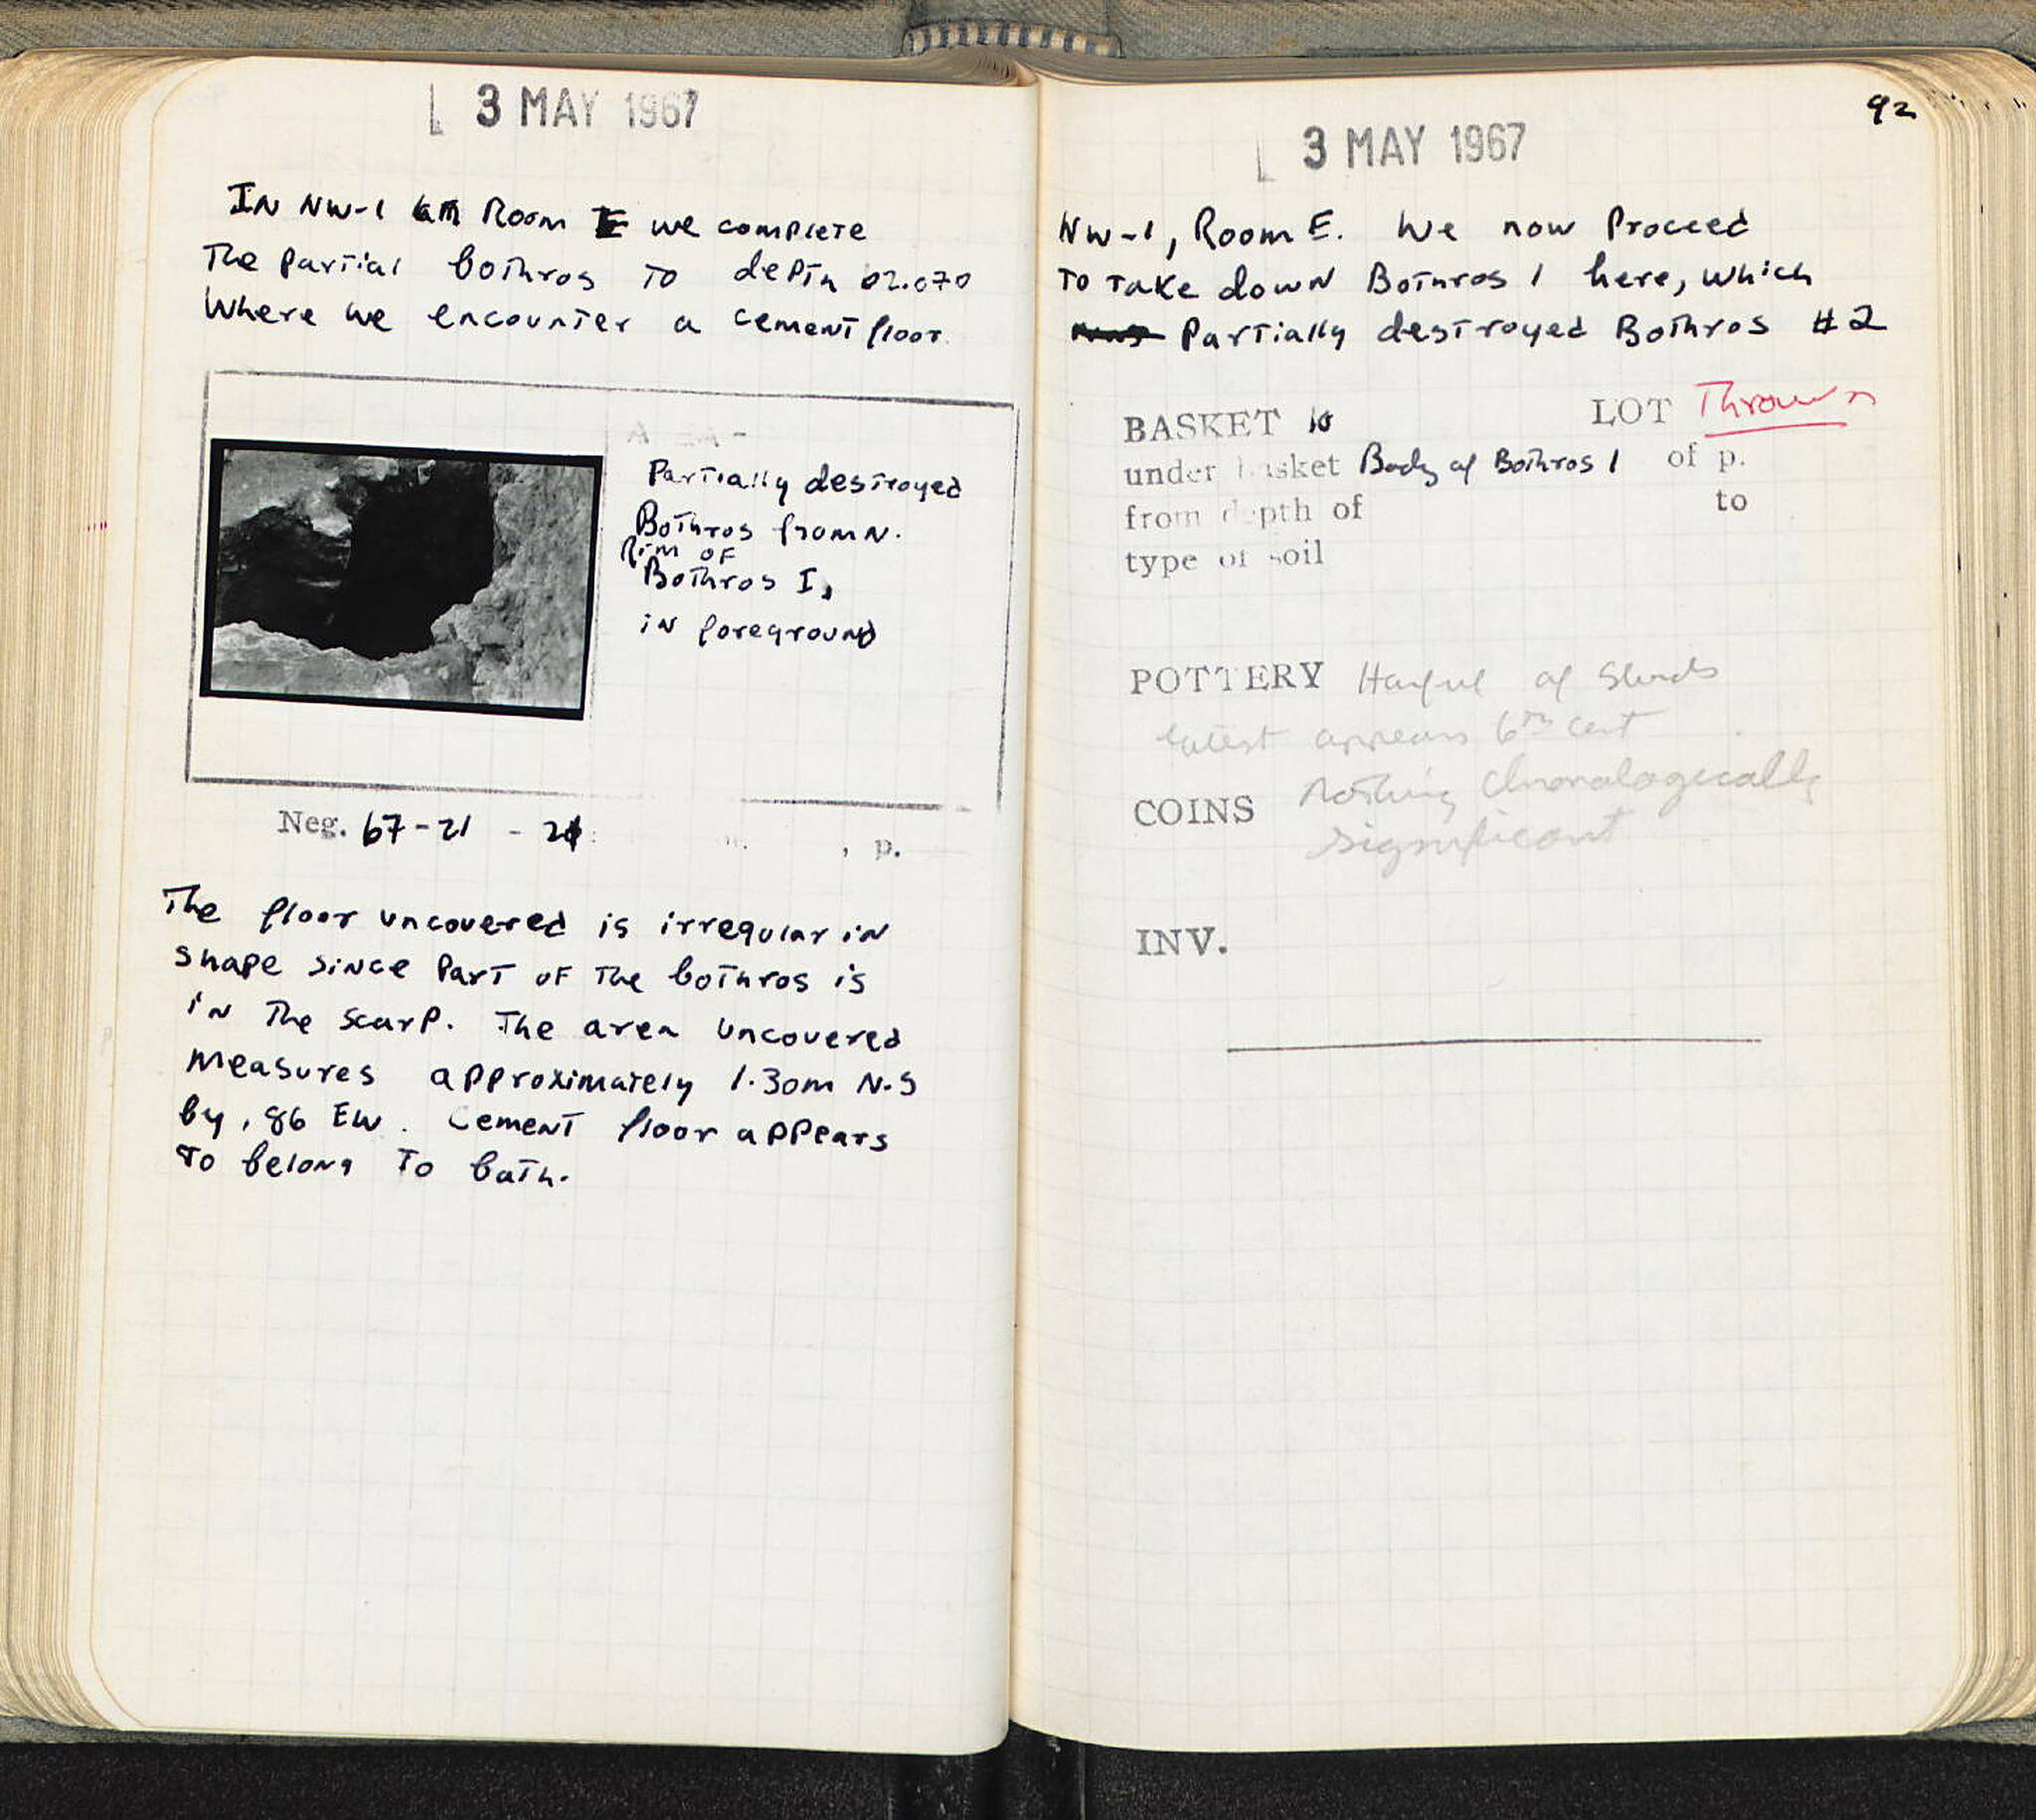 3 MAY 1967
IN NW-1 Room E we complete
The Partial bothros To depth 02.070
Where we encounter a cement floor.
Partially destroyed
Bothros from N.
Rim OF
Bothros I,
in foreground
Neg. 67-21 - 21 , p.
The floor uncovered is irregular in
shape since Part OF The bothros is
in The scarp. The area uncovered
measures approximately 1.30m N-S
by .86 EW. Cement floor appears
To belong To bath.
92
3 MAY 1967
NW-1, Room E. We now Proceed
To Take down Bothros 1 here, which
Partially destroyed Bothros #2
BASKET 10 LOT Thrown
under basket Body of Bothros 1 of p.
from depth of to
type of soil
POTTERY Hatful of Sherds
latest appears 6th cent
COINS nothing chronologically
significant
INV.